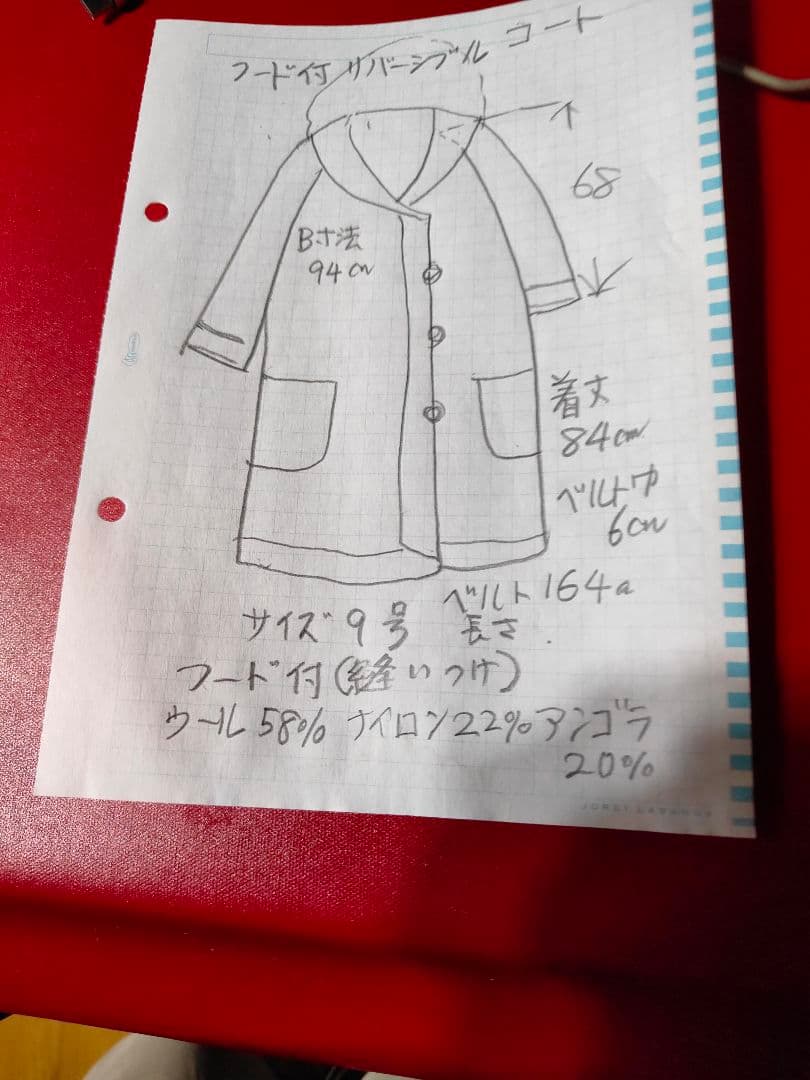 フード付 リバーシブル コート
68
B寸法
94cm
着丈
84cm
ベルト巾
6cm
ベルト 164
長さ
サイズ 9号
フード付(縫いつけ)
ウール58% ナイロン22% アンゴラ
20%